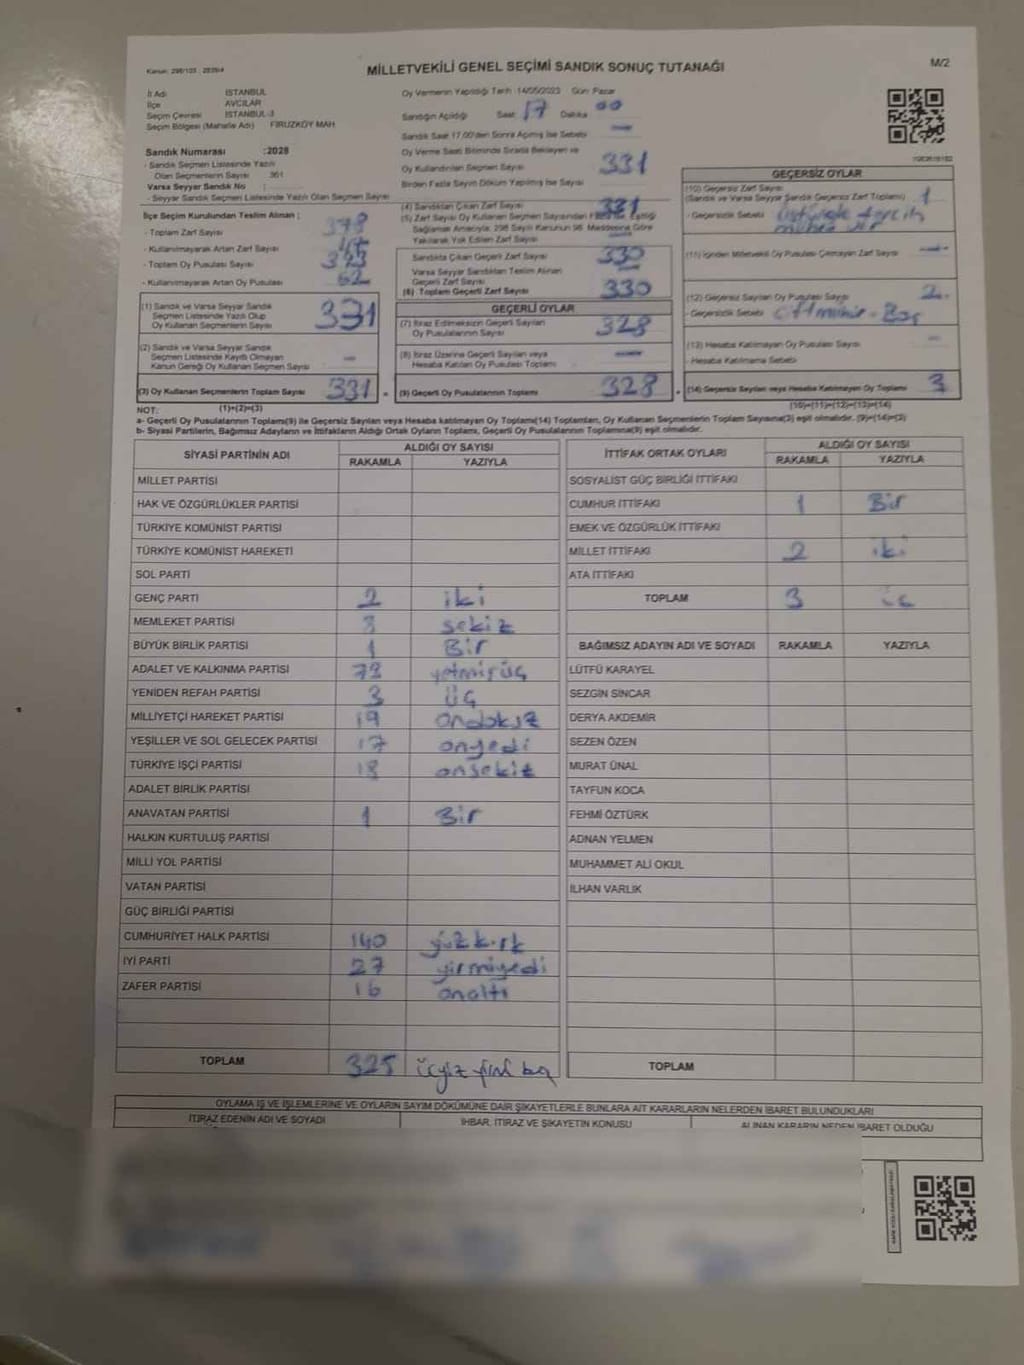 Kanun: 298/103 : 2839/4
MİLLETVEKİLİ GENEL SEÇİMİ SANDIK SONUÇ TUTANAĞI
M/2
İl Adı İSTANBUL
İlçe AVCILAR
Seçim Çevresi İSTANBUL-3
Seçim Bölgesi (Mahalle Adı) FİRUZKÖY MAH.
Sandık Numarası :2028
- Sandık Seçmen Listesinde Yazılı
Olan Seçmenlerin Sayısı 361
Varsa Seyyar Sandık No :
- Seyyar Sandık Seçmen Listesinde Yazılı Olan Seçmen Sayısı
İlçe Seçim Kurulundan Teslim Alınan ;
- Toplam Zarf Sayısı 378
- Kullanılmayarak Artan Zarf Sayısı
- Toplam Oy Pusulası Sayısı
- Kullanılmayarak Artan Oy Pusulası 62
(1) Sandık ve Varsa Seyyar Sandık
Seçmen Listesinde Yazılı Olup
Oy Kullanan Seçmenlerin Sayısı 331
(2) Sandık ve Varsa Seyyar Sandık
Seçmen Listesinde Kayıtlı Olmayan
Kanun Gereği Oy Kullanan Seçmen Sayısı —
(3) Oy Kullanan Seçmenlerin Toplam Sayısı 331
(1)+(2)=(3)
Oy Vermenin Yapıldığı Tarih :14/05/2023 Gün: Pazar
Sandığın Açıldığı Saat 17 Dakika 00
Sandık Saat 17.00'den Sonra Açılmış İse Sebebi —
Oy Verme Saati Bitiminde Sırada Bekleyen ve
Oy Kullandırılan Seçmen Sayısı 331
Birden Fazla Sayım Döküm Yapılmış İse Sayısı
(4) Sandıktan Çıkan Zarf Sayısı 331
(5) Zarf Sayısı Oy Kullanan Seçmen Sayısından Fazla İse, Eşitliği
Sağlamak Amacıyla; 298 Sayılı Kanunun 98. Maddesine Göre
Yakılarak Yok Edilen Zarf Sayısı —
Sandıkta Çıkan Geçerli Zarf Sayısı 330
Varsa Seyyar Sandıktan Teslim Alınan
Geçerli Zarf Sayısı —
(6) Toplam Geçerli Zarf Sayısı 330
GEÇERLİ OYLAR
(7) İtiraz Edilmeksizin Geçerli Sayılan
Oy Pusulasının Sayısı 328
(8) İtiraz Üzerine Geçerli Sayılan veya
Hesaba Katılan Oy Pusulası Toplamı —
(9) Geçerli Oy Pusulasının Toplamı 328
GEÇERSİZ OYLAR
(10) Geçersiz Zarf Sayısı
(Sandık ve Varsa Seyyar Sandık Geçersiz Zarf Toplamı) 1
- Geçersizlik Sebebi üstünde tercih
mührü
(11) İçinden Milletvekili Oy Pusulası Çıkmayan Zarf Sayısı —
(12) Geçersiz Sayılan Oy Pusulası Sayısı 2
- Geçersizlik Sebebi Çift mühür - Boş
(13) Hesaba Katılmayan Oy Pusulası Sayısı —
- Hesaba Katılmama Sebebi
(14) Geçersiz Sayılan veya Hesaba Katılmayan Oy Toplamı 3
(10)+(11)+(12)+(13)=(14)
NOT:
a- Geçerli Oy Pusulalarının Toplamı(9) ile Geçersiz Sayılan veya Hesaba katılmayan Oy Toplamı(14) Toplamları, Oy Kullanan Seçmenlerin Toplam Sayısına(3) eşit olmalıdır. (9)+(14)=(3)
b- Siyasi Partilerin, Bağımsız Adayların ve İttifakların Aldığı Ortak Oyların Toplamı, Geçerli Oy Pusulalarının Toplamına(9) eşit olmalıdır.
SİYASİ PARTİNİN ADI ALDIĞI OY SAYISI
RAKAMLA YAZIYLA
MİLLET PARTİSİ
HAK VE ÖZGÜRLÜKLER PARTİSİ
TÜRKİYE KOMÜNİST PARTİSİ
TÜRKİYE KOMÜNİST HAREKETİ
SOL PARTİ
GENÇ PARTİ 2 iki
MEMLEKET PARTİSİ 8 sekiz
BÜYÜK BİRLİK PARTİSİ 1 Bir
ADALET VE KALKINMA PARTİSİ 73 yetmişüç
YENİDEN REFAH PARTİSİ 3 üç
MİLLİYETÇİ HAREKET PARTİSİ 19 ondokuz
YEŞİLLER VE SOL GELECEK PARTİSİ 17 onyedi
TÜRKİYE İŞÇİ PARTİSİ 18 onsekiz
ADALET BİRLİK PARTİSİ
ANAVATAN PARTİSİ 1 Bir
HALKIN KURTULUŞ PARTİSİ
MİLLİ YOL PARTİSİ
VATAN PARTİSİ
GÜÇ BİRLİĞİ PARTİSİ
CUMHURİYET HALK PARTİSİ 140 yüzkırk
İYİ PARTİ 27 yirmiyedi
ZAFER PARTİSİ 16 onaltı
TOPLAM 325
İTTİFAK ORTAK OYLARI ALDIĞI OY SAYISI
RAKAMLA YAZIYLA
SOSYALİST GÜÇ BİRLİĞİ İTTİFAKI
CUMHUR İTTİFAKI 1 Bir
EMEK VE ÖZGÜRLÜK İTTİFAKI
MİLLET İTTİFAKI 2 iki
ATA İTTİFAKI
TOPLAM 3 üç
BAĞIMSIZ ADAYIN ADI VE SOYADI RAKAMLA YAZIYLA
LÜTFÜ KARAYEL
SEZGİN SİNCAR
DERYA AKDEMİR
SEZEN ÖZEN
MURAT ÜNAL
TAYFUN KOCA
FEHMİ ÖZTÜRK
ADNAN YELMEN
MUHAMMET ALİ OKUL
İLHAN VARLIK
TOPLAM
OYLAMA İŞ VE İŞLEMLERİNE VE OYLARIN SAYIM DÖKÜMÜNE DAİR ŞİKAYETLERLE BUNLARA AİT KARARLARIN NELERDEN İBARET BULUNDUKLARI
İTİRAZ EDENİN ADI VE SOYADI İHBAR, İTİRAZ VE ŞİKAYETİN KONUSU ALINAN KARARIN NEDEN İBARET OLDUĞU